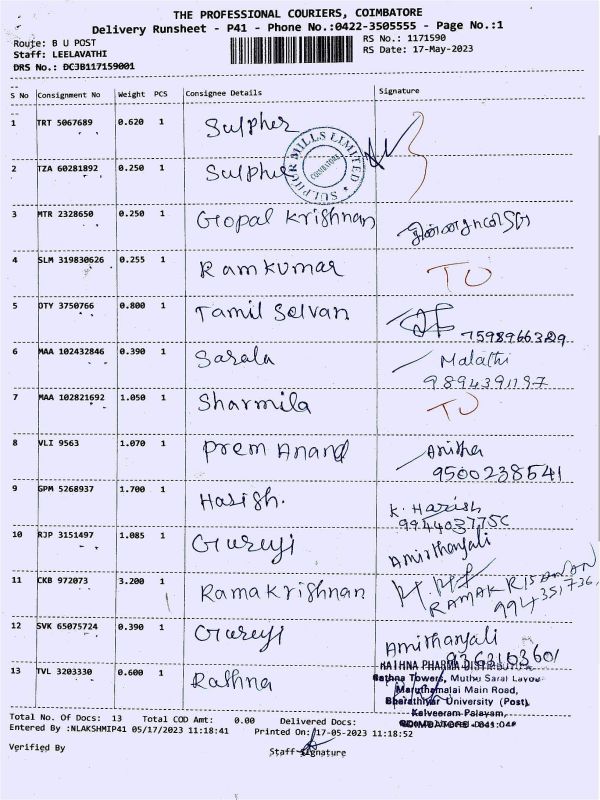 THE PROFESSIONAL COURIERS, COIMBATORE
Delivery Runsheet - P41 - Phone No.:0422-3505555 - Page No.:1
Route: B U POST
RS No.: 1171590
Staff: LEELAVATHI
RS Date: 17-May-2023
DRS No.: DC3B117159001
S No Consignment No Weight PCS Consignee Details Signature
1 TRT 5067689 0.620 1 Sulpher
SULPHUR MILLS LIMITED
COIMBATORE
2 TZA 60281892 0.250 1 Sulpher
3 MTR 2328650 0.250 1 Gopal Krishnan
4 SLM 319830626 0.255 1 Ramkumar TO
5 OTY 3750766 0.800 1 Tamil Selvan
6 MAA 102432846 0.390 1 Sarala Malathi
9894391197
7 MAA 102821692 1.050 1 Sharmila TO
8 VLI 9563 1.070 1 Prem Anand Anitha
9500238541
9 GPM 5268937 1.700 1 Harish. K. Harish
10 RJP 3151497 1.085 1 Guruji Amirthanjali
11 CKB 972073 3.200 1 Ramakrishnan
12 SVK 65075724 0.390 1 Guruji Amithanjali
13 TVL 3203330 0.600 1 Rathna
RATHNA PHARMA DISTRIBUTOR
Rathna Towers, Muthu Sarai Layou
Maruthamalai Main Road,
Bharathiyar University (Post),
Kalveeram Palayam,
COIMBATORE - 641 046
Total No. Of Docs: 13 Total COD Amt: 0.00 Delivered Docs:
Entered By :NLAKSHMIP41 05/17/2023 11:18:41 Printed On: 17-05-2023 11:18:52
Verified By Staff Signature